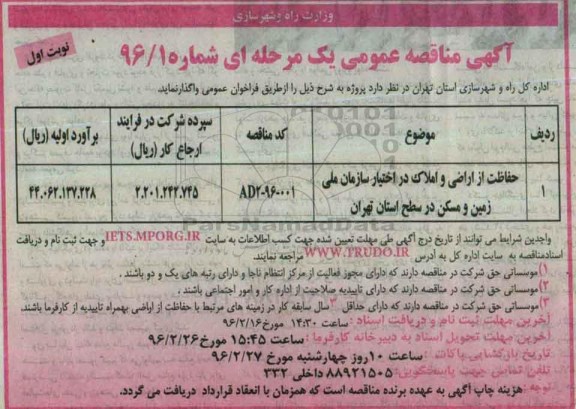 وزارت راه وشهرسازی
نوبت اول
آگهی مناقصه عمومی یک مرحله ای شماره ۹۶/۱
اداره کل راه و شهرسازی استان تهران در نظر دارد پروژه به شرح ذیل را ازطریق فراخوان عمومی واگذارنماید.
ردیف موضوع کد مناقصه سپرده شرکت در فرایند ارجاع کار (ریال) برآورد اولیه (ریال)
۱ حفاظت از اراضی و املاک در اختیار سازمان ملی زمین و مسکن در سطح استان تهران AD۲-۹۶-۰۰۱ ۲.۲۰۱.۲۴۲.۷۴۵ ۴۴.۰۶۲.۱۳۷.۲۲۸
واجدین شرایط می توانند از تاریخ درج آگهی طی مهلت تعیین شده جهت کسب اطلاعات به سایت IETS.MPORG.IR و جهت ثبت نام و دریافت
اسنادمناقصه به سایت اداره کل به آدرس WWW.TRUDO.IR مراجعه نمایند.
۱)موسساتی حق شرکت در مناقصه دارند که دارای مجوز فعالیت از مرکز انتظام ناجا و دارای رتبه های یک و دو باشند .
۲)موسساتی حق شرکت در مناقصه دارند که دارای تاییدیه صلاحیت از اداره کار و امور اجتماعی باشند .
۳)موسساتی حق شرکت در مناقصه دارند که دارای حداقل ۳ سال سابقه کار در زمینه های مرتبط با حفاظت از اراضی بهمراه تاییدیه از کارفرما باشند.
آخرین مهلت ثبت نام و دریافت اسناد : ساعت ۱۴:۳۰ مورخ۹۶/۲/۱۶
آخرین مهلت تحویل اسناد به دبیرخانه کارفرما : ساعت ۱۵:۴۵ مورخ۹۶/۲/۲۶
تاریخ بازگشایی پاکات : ساعت ۱۰روز چهارشنبه مورخ ۹۶/۲/۲۷
تلفن تماس جهت پاسخگویی: ۸۸۹۲۱۵۰۵ داخلی ۳۳۲
توجه : هزینه چاپ آگهی به عهده برنده مناقصه است که همزمان با انعقاد قرارداد دریافت می گردد.
ParsNamadData